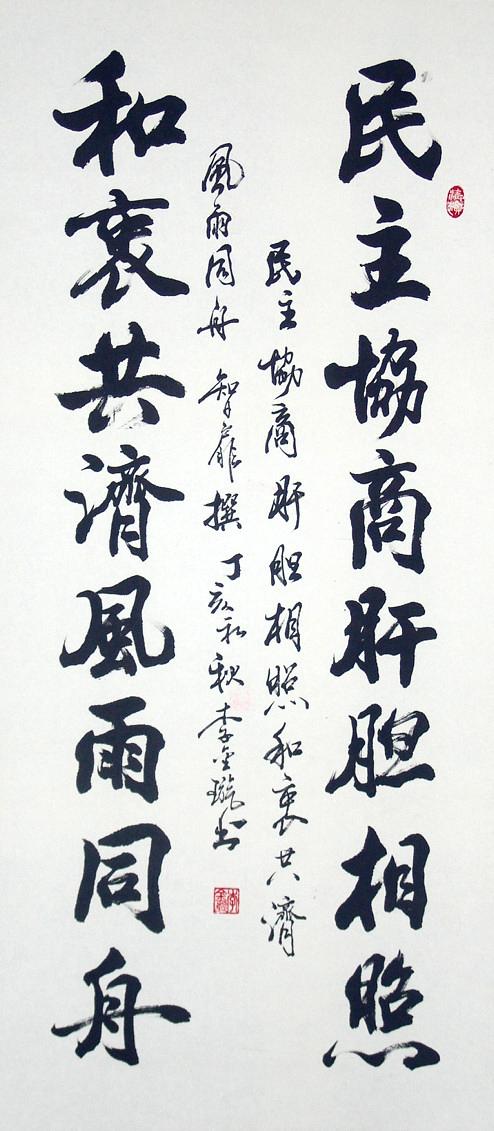 民主協商肝胆相照
民主協商肝胆相照和衷共濟
風雨同舟 智 撰 丁亥初秋李金璇书
和衷共濟風雨同舟